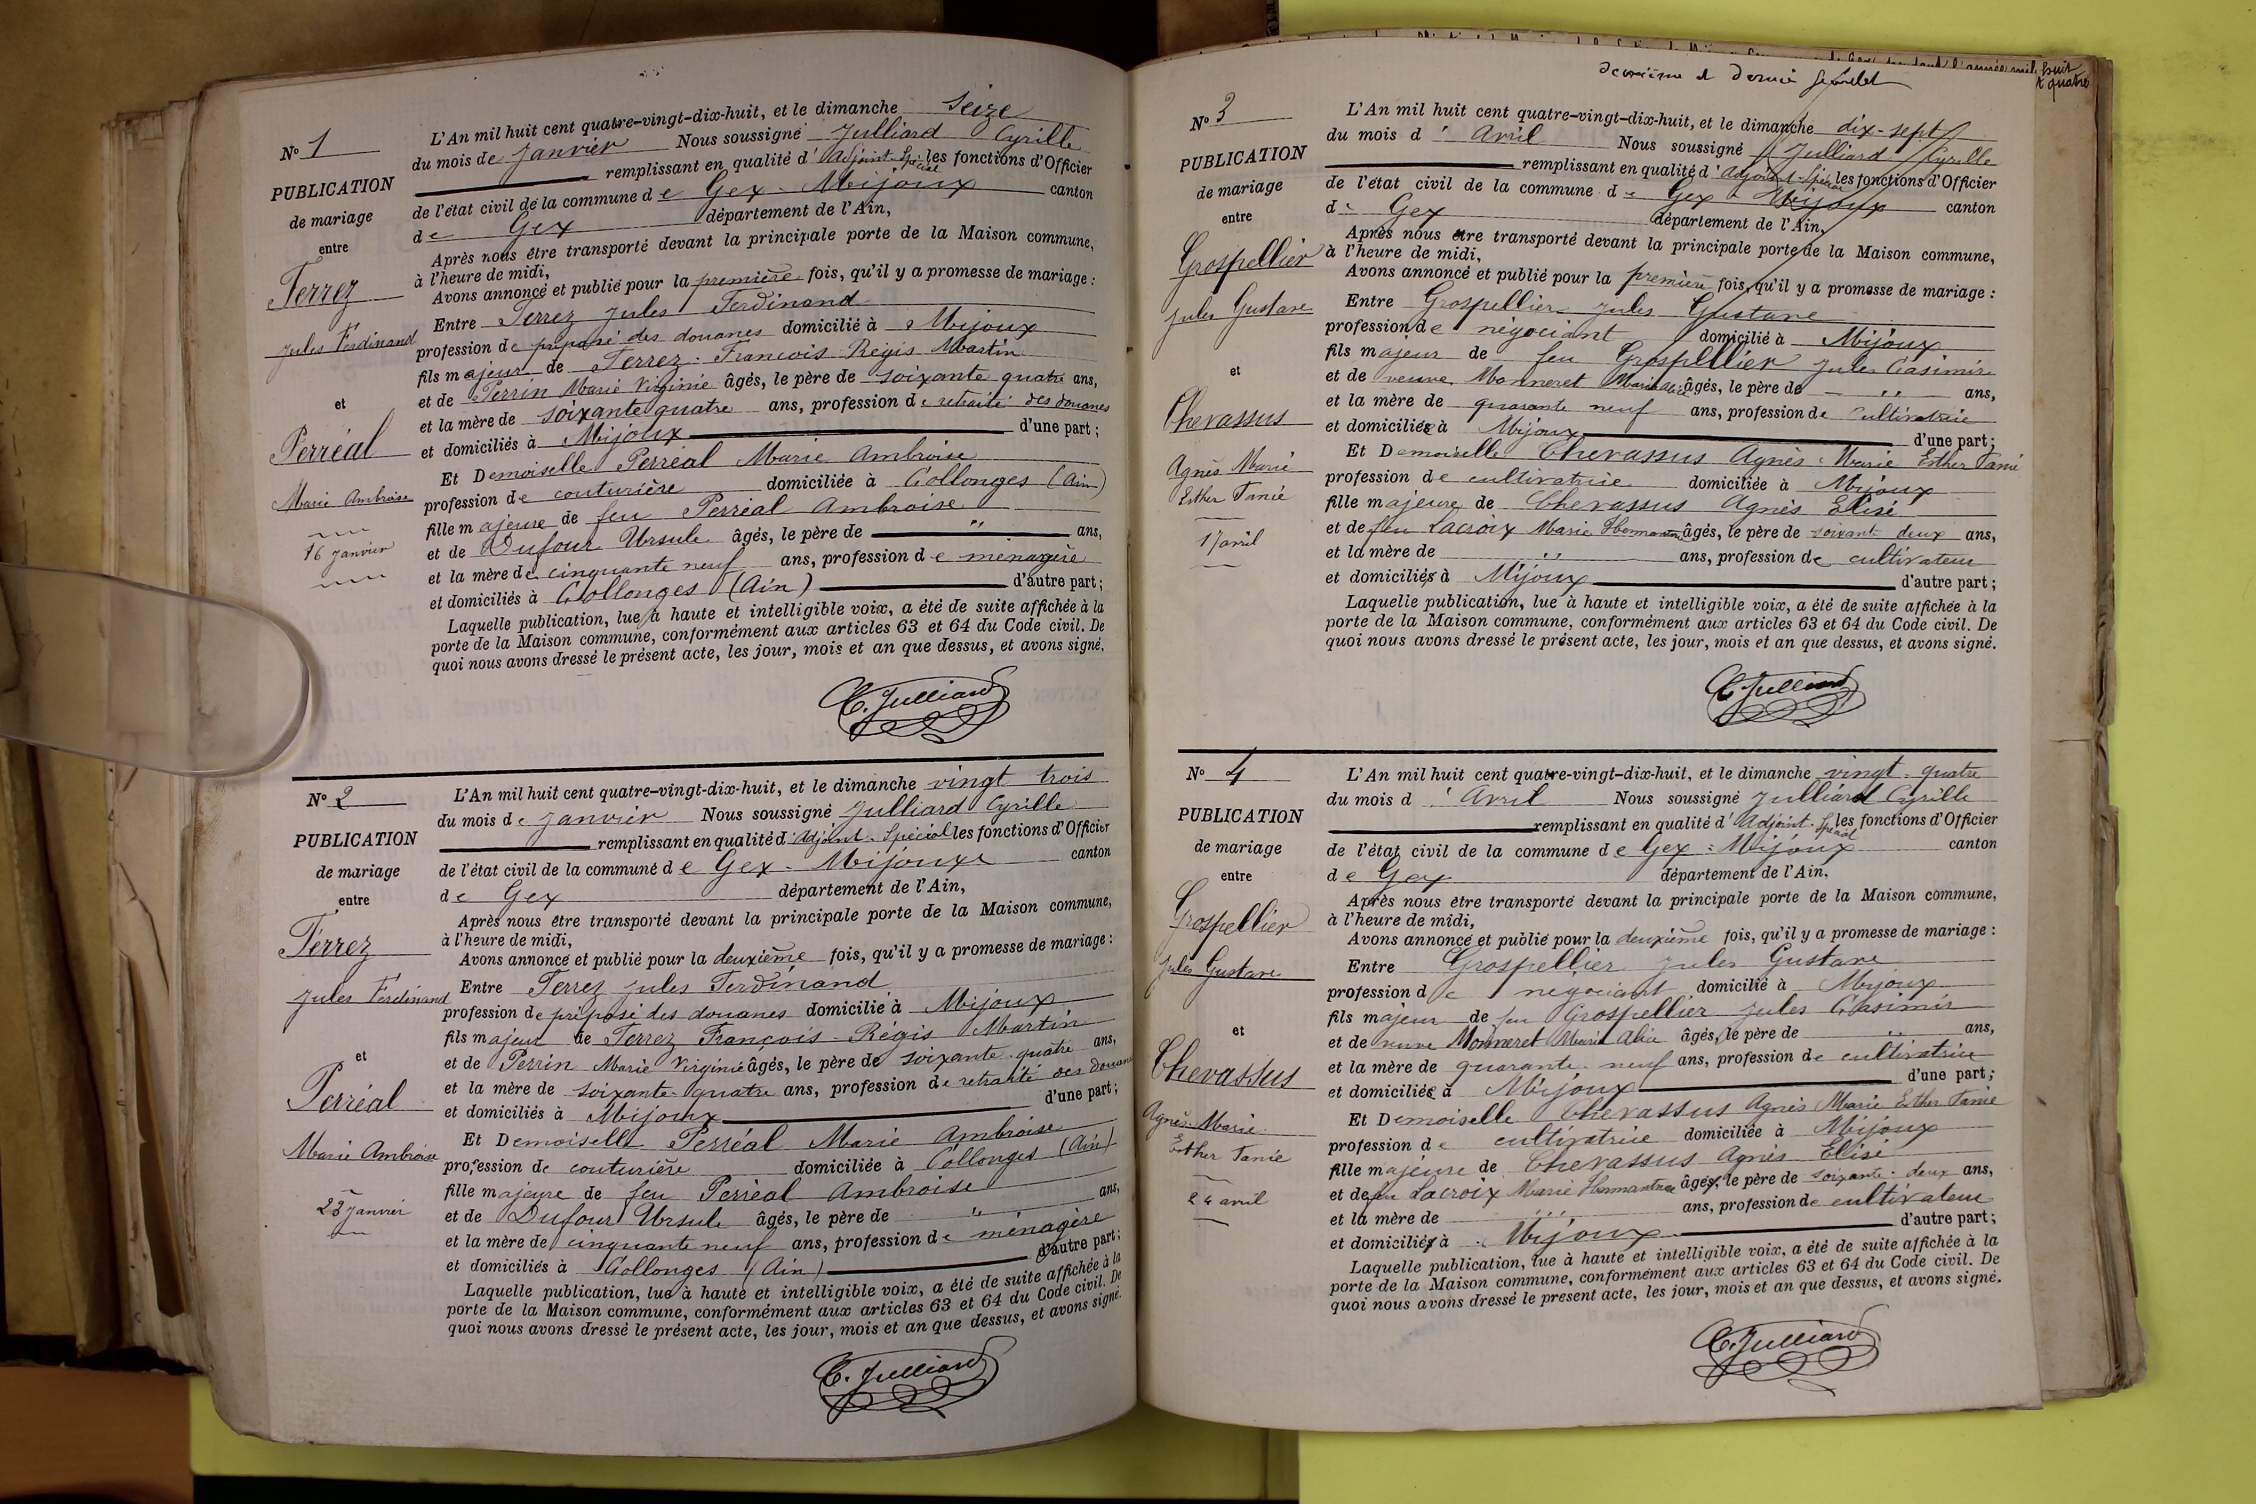 N° 1
PUBLICATION
de mariage
entre
Ferrez
Jules Ferdinand
et
Perréal
Marie Ambroise
16 Janvier
L'An mil huit cent quatre-vingt-dix-huit, et le dimanche seize
du mois de Janvier Nous soussigné Julliard Cyrille
remplissant en qualité d'Adjoint-Spécial les fonctions d'Officier
de l'état civil de la commune de Gex-Mijoux canton
de Gex département de l'Ain,
Après nous être transporté devant la principale porte de la Maison commune,
à l'heure de midi,
Avons annoncé et publié pour la première fois, qu'il y a promesse de mariage :
Entre Ferrez Jules Ferdinand
profession de préposé des douanes domicilié à Mijoux
fils majeur de Ferrez François Régis Martin
et de Perrin Marie Virginie âgés, le père de soixante quatre ans,
et la mère de soixante quatre ans, profession de retraité des douanes
et domiciliés à Mijoux d'une part ;
Et Demoiselle Perréal Marie Ambroise
profession de couturière domiciliée à Collonges (Ain)
fille majeure de feu Perréal Ambroise
et de Dufour Ursule âgés, le père de " ans,
et la mère de cinquante neuf ans, profession de ménagère
et domiciliés à Collonges (Ain) d'autre part ;
Laquelle publication, lue à haute et intelligible voix, a été de suite affichée à la
porte de la Maison commune, conformément aux articles 63 et 64 du Code civil. De
quoi nous avons dressé le présent acte, les jour, mois et an que dessus, et avons signé.
C. Julliard
N° 2
PUBLICATION
de mariage
entre
Ferrez
Jules Ferdinand
et
Perréal
Marie Ambroise
23 Janvier
L'An mil huit cent quatre-vingt-dix-huit, et le dimanche vingt trois
du mois de Janvier Nous soussigné Julliard Cyrille
remplissant en qualité d'Adjoint-Spécial les fonctions d'Officier
de l'état civil de la commune de Gex-Mijoux canton
de Gex département de l'Ain,
Après nous être transporté devant la principale porte de la Maison commune,
à l'heure de midi,
Avons annoncé et publié pour la deuxième fois, qu'il y a promesse de mariage :
Entre Ferrez Jules Ferdinand
profession de préposé des douanes domicilié à Mijoux
fils majeur de Ferrez François-Régis Martin
et de Perrin Marie Virginie âgés, le père de soixante quatre ans,
et la mère de soixante quatre ans, profession de retraité des douanes
et domiciliés à Mijoux d'une part ;
Et Demoiselle Perréal Marie Ambroise
profession de couturière domiciliée à Collonges (Ain)
fille majeure de feu Perréal Ambroise
et de Dufour Ursule âgés, le père de " ans,
et la mère de cinquante neuf ans, profession de ménagère
et domiciliés à Collonges (Ain) d'autre part ;
Laquelle publication, lue à haute et intelligible voix, a été de suite affichée à la
porte de la Maison commune, conformément aux articles 63 et 64 du Code civil. De
quoi nous avons dressé le présent acte, les jour, mois et an que dessus, et avons signé.
C. Julliard
deuxième et dernier feuillet
huit
quatre
N° 3
PUBLICATION
de mariage
entre
Grospellier
Jules Gustave
et
Chevassus
Agnès Marie
Esther Fanie
17 avril
L'An mil huit cent quatre-vingt-dix-huit, et le dimanche dix-sept
du mois d'Avril Nous soussigné Julliard Cyrille
remplissant en qualité d'Adjoint-Spécial les fonctions d'Officier
de l'état civil de la commune de Gex-Mijoux canton
de Gex département de l'Ain,
Après nous être transporté devant la principale porte de la Maison commune,
à l'heure de midi,
Avons annoncé et publié pour la première fois, qu'il y a promesse de mariage :
Entre Grospellier Jules Gustave
profession de négociant domicilié à Mijoux
fils majeur de feu Grospellier Jules Casimir
et de veuve Monneret Marie âgés, le père de " ans,
et la mère de quarante neuf ans, profession de cultivatrice
et domiciliés à Mijoux d'une part ;
Et Demoiselle Chevassus Agnès Marie Esther Fanie
profession de cultivatrice domiciliée à Mijoux
fille majeure de Chevassus Agnès Elisé
et de feu Lacroix Marie âgés, le père de soixante deux ans,
et la mère de " ans, profession de cultivateur
et domiciliés à Mijoux d'autre part ;
Laquelle publication, lue à haute et intelligible voix, a été de suite affichée à la
porte de la Maison commune, conformément aux articles 63 et 64 du Code civil. De
quoi nous avons dressé le présent acte, les jour, mois et an que dessus, et avons signé.
C. Julliard
N° 4
PUBLICATION
de mariage
entre
Grospellier
Jules Gustave
et
Chevassus
Agnès Marie
Esther Fanie
24 avril
L'An mil huit cent quatre-vingt-dix-huit, et le dimanche vingt-quatre
du mois d'Avril Nous soussigné Julliard Cyrille
remplissant en qualité d'Adjoint-Spécial les fonctions d'Officier
de l'état civil de la commune de Gex-Mijoux canton
de Gex département de l'Ain,
Après nous être transporté devant la principale porte de la Maison commune,
à l'heure de midi,
Avons annoncé et publié pour la deuxième fois, qu'il y a promesse de mariage :
Entre Grospellier Jules Gustave
profession de négociant domicilié à Mijoux
fils majeur de feu Grospellier Jules Casimir
et de veuve Monneret Marie âgés, le père de " ans,
et la mère de quarante neuf ans, profession de cultivatrice
et domiciliés à Mijoux d'une part ;
Et Demoiselle Chevassus Agnès Marie Esther Fanie
profession de cultivatrice domiciliée à Mijoux
fille majeure de Chevassus Agnès Elisé
et de feu Lacroix Marie âgés, le père de soixante-deux ans,
et la mère de " ans, profession de cultivateur
et domiciliés à Mijoux d'autre part ;
Laquelle publication, lue à haute et intelligible voix, a été de suite affichée à la
porte de la Maison commune, conformément aux articles 63 et 64 du Code civil. De
quoi nous avons dressé le présent acte, les jour, mois et an que dessus, et avons signé.
C. Julliard